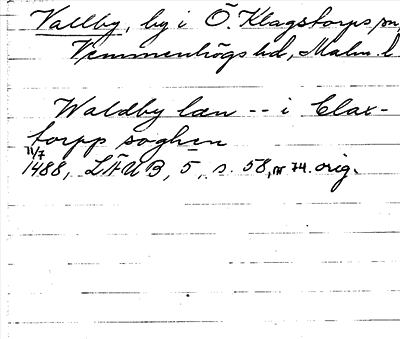 Vallby, by i Ö. Klagstorps sn,
Vemmenhögs hd, Malm. l
Waldby læn -- i Clax-
torpp soghen
11/7
1488, LÄUB, 5, s. 58, nr 74. orig.